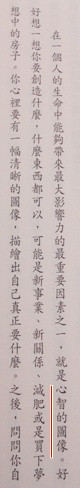 在一個人的生命中能夠帶來最大影響力的最重要因素之一，就是心智的圖像。好
好想一想你要創造什麼，什麼東西都可以，可能是新事業、新關係、減肥或是買下夢
想中的房子。你心裡要有一幅清晰的圖像，描繪出自己真正要什麼。之後，問問你自